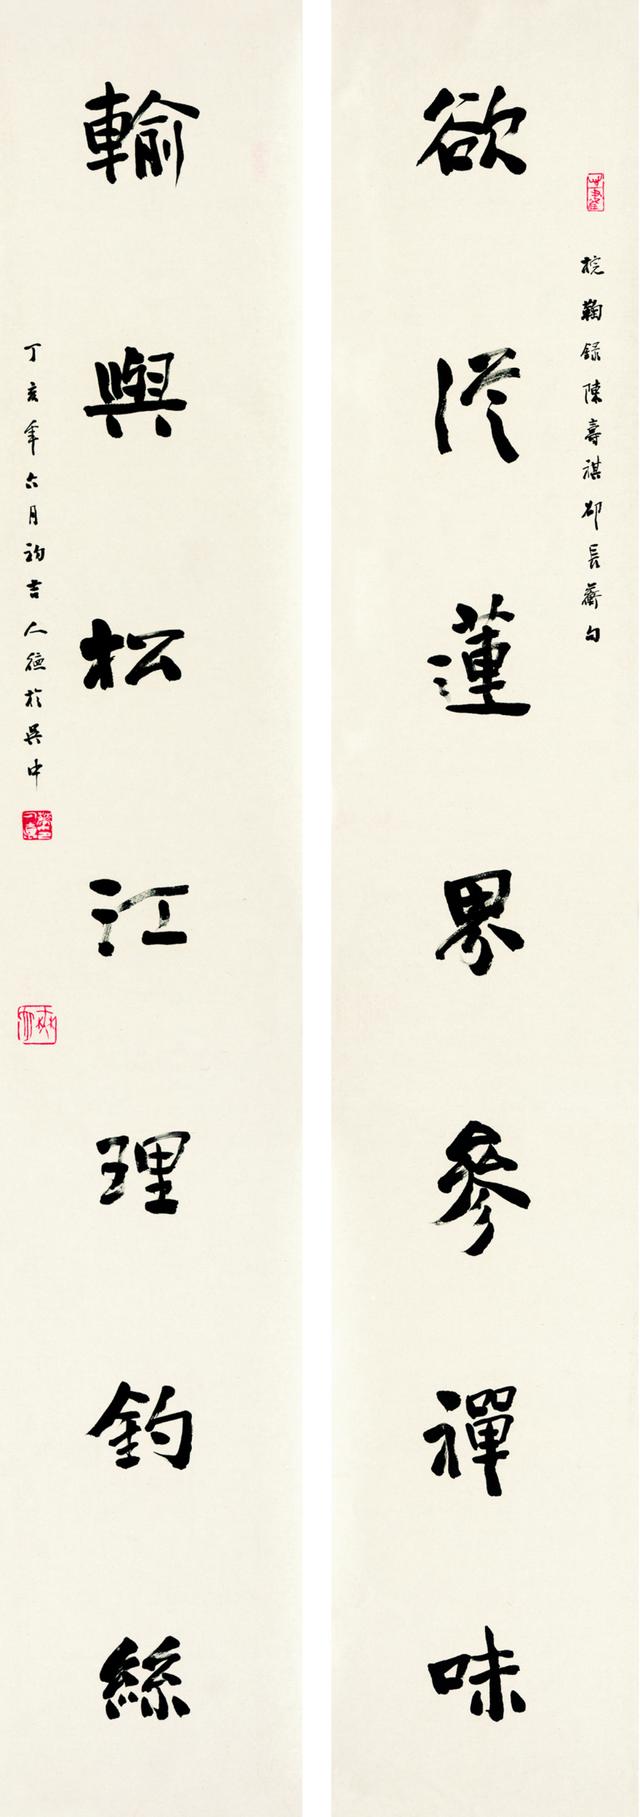 梡鞠錄陳壽祺邵長蘅句
欲從蓮界參禪味
輸與松江理釣絲
丁亥年六月初吉人德於吳中